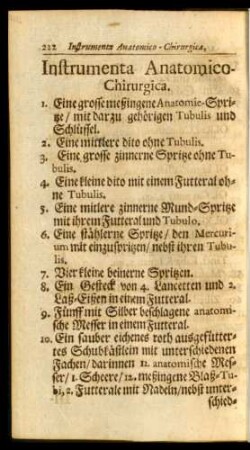 212 Instrumenta Anatomico-Chirurgica.
Instrumenta Anatomico-
Chirurgica.
1. Eine grosse meßingene Anatomie-Sprit-
ze/ mit darzu gehörigen Tubulis und
Schlüssel.
2. Eine mittlere dito ohne Tubulis.
3. Eine grosse zinnerne Spritze ohne Tu-
bulis.
4. Eine kleine dito mit einem Futteral oh-
ne Tubulis.
5. Eine mitlere zinnerne Mund-Spritze
mit ihrem Futteral und Tubulo.
6. Eine stählerne Spritze/ den Mercuri-
um mit einzuspritzen/ nebst ihren Tubu-
lis.
7. Vier kleine beinerne Spritzen.
8. Ein Gesteck von 4. Lancetten und 2.
Laß-Eißen in einem Futteral.
9. Fünff mit Silber beschlagene anatomi-
sche Messer in einem Futteral.
10. Ein sauber eichenes roth ausgefütter-
tes Schubkästlein mit unterschiedenen
Fachen/ darinnen 11. anatomische Mes-
ser/ 1. Scheere/ 12. meßingene Blaß-Tu-
bi, 2. Futterale mit Nadeln/ nebst unter-
schied-